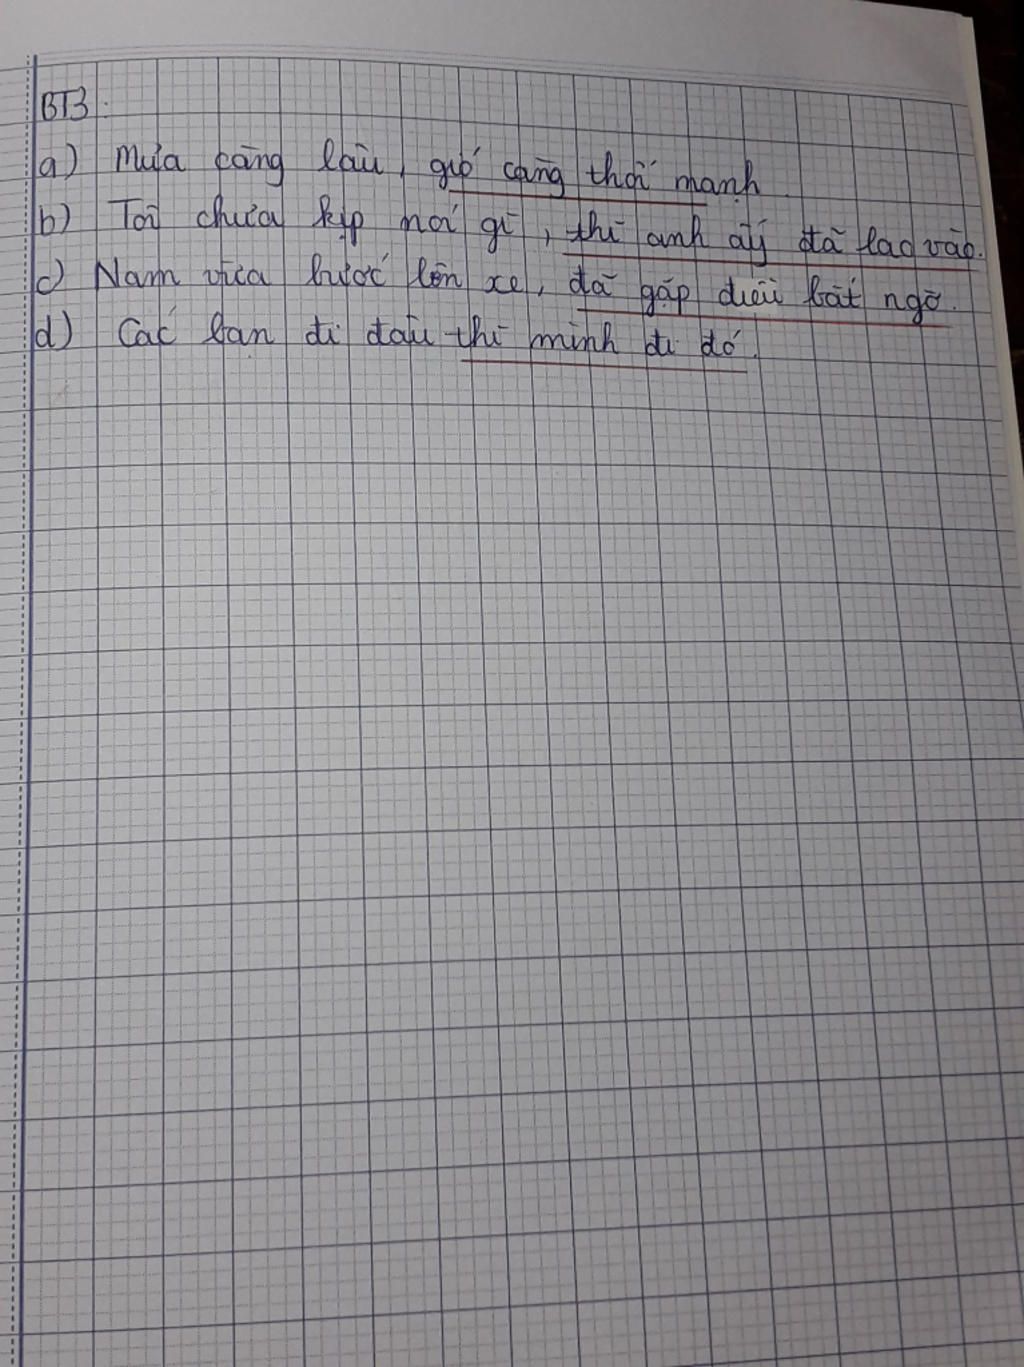 BT3.
a) Mưa càng lâu, gió càng thổi mạnh
b) Tôi chưa kịp nói gì, thì anh ấy đã lao vào.
c) Nam vừa bước lên xe, đã gặp điều bất ngờ.
d) Các bạn đi đâu thì mình đi đó.